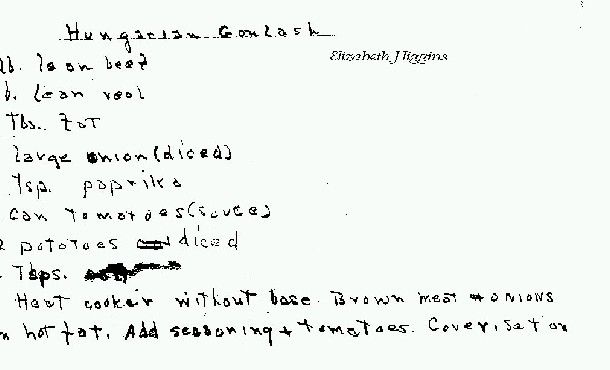 Hungarian Goulash
Elizabeth J Higgins
lb. lean beef
b. lean veal
Tbs. Fat
large onion (diced)
Tsp. paprika
can tomatoes (sauce)
2 potatoes diced
Tbsps.
Heat cooker without base. Brown meat + onions
n hot fat. Add seasoning + tomatoes. Cover, set on